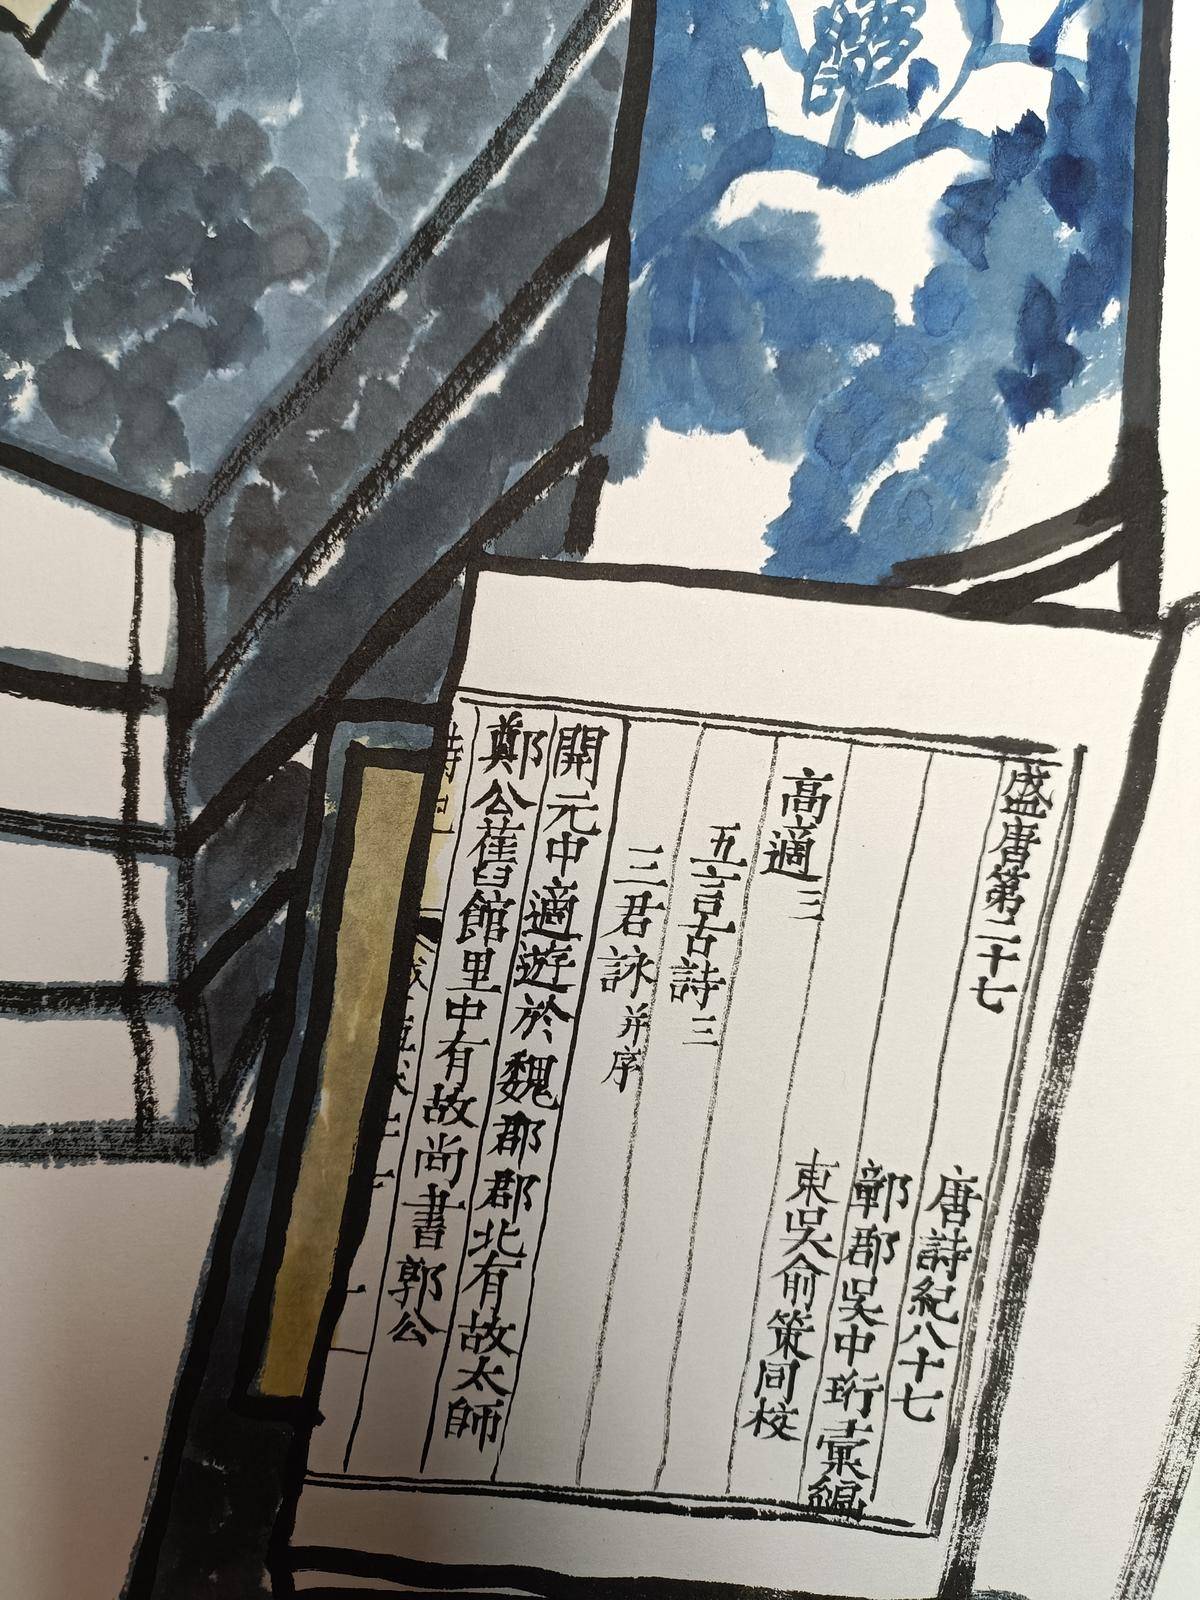 盛唐第二十七
唐詩紀八十七
鄣郡吳中珩彙編
東吳俞策同校
高適三
五言古詩三
三君詠并序
開元中適遊於魏郡郡北有故太師
鄭公舊館里中有故尚書郭公